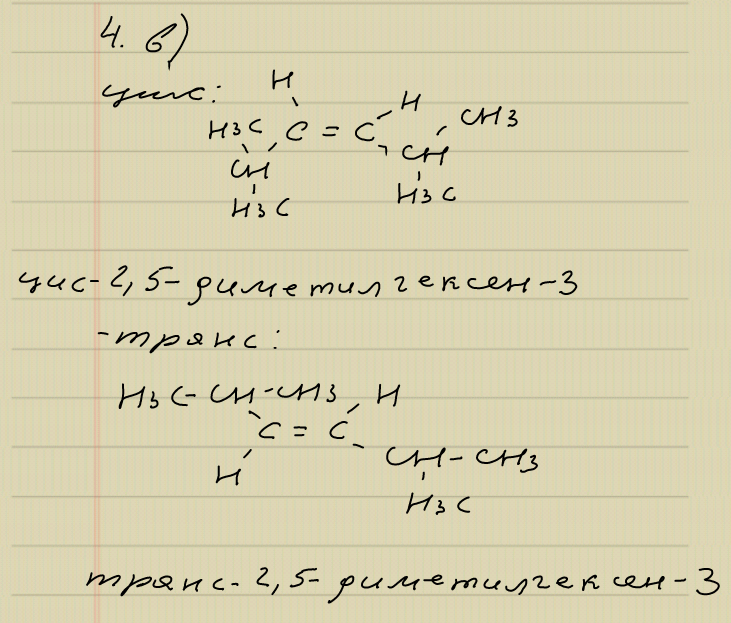 4. б)
цис:
H
H
CH3
H3C C = C
CH CH
H3C H3C
цис-2,5-диметилгексен-3
-транс:
H3C-CH-CH3 H
C = C
H CH-CH3
H3C
транс-2,5-диметилгексен-3